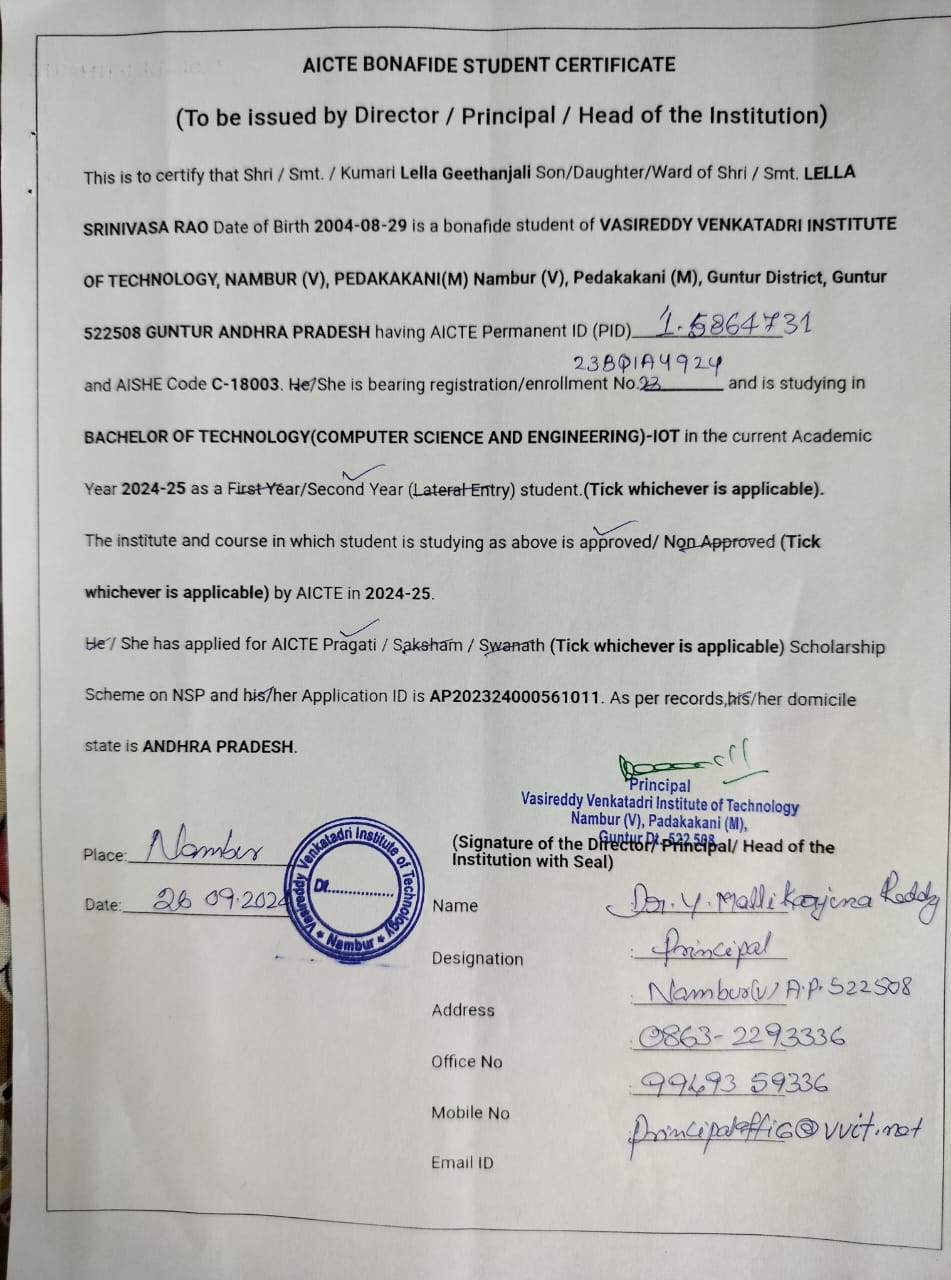 AICTE BONAFIDE STUDENT CERTIFICATE
(To be issued by Director / Principal / Head of the Institution)
This is to certify that Shri / Smt. / Kumari Lella Geethanjali Son/Daughter/Ward of Shri / Smt. LELLA
SRINIVASA RAO Date of Birth 2004-08-29 is a bonafide student of VASIREDDY VENKATADRI INSTITUTE
OF TECHNOLOGY, NAMBUR (V), PEDAKAKANI(M) Nambur (V), Pedakakani (M), Guntur District, Guntur
522508 GUNTUR ANDHRA PRADESH having AICTE Permanent ID (PID) 1-5864731
23BQ1A4924
and AISHE Code C-18003. He/She is bearing registration/enrollment No.23 and is studying in
BACHELOR OF TECHNOLOGY(COMPUTER SCIENCE AND ENGINEERING)-IOT in the current Academic
Year 2024-25 as a First Year/Second Year (Lateral Entry) student.(Tick whichever is applicable).
The institute and course in which student is studying as above is approved/ Non Approved (Tick
whichever is applicable) by AICTE in 2024-25.
He / She has applied for AICTE Pragati / Saksham / Swanath (Tick whichever is applicable) Scholarship
Scheme on NSP and his/her Application ID is AP202324000561011. As per records,his/her domicile
state is ANDHRA PRADESH.
Principal
Vasireddy Venkatadri Institute of Technology
Nambur (V), Padakakani (M),
Guntur Dt.-522 508
(Signature of the Director/ Principal/ Head of the
Institution with Seal)
Place: Nambur
Date: 26 09.2024
Vasireddy Venkatadri Institute of Technology
Dt..................
* Nambur *
Name Dr. Y. Mallikarjuna Reddy
Designation : Principal
Address : Nambur(V) A.P. 522508
Office No : 0863-2293336
Mobile No : 99493 59336
Email ID @vvit.net